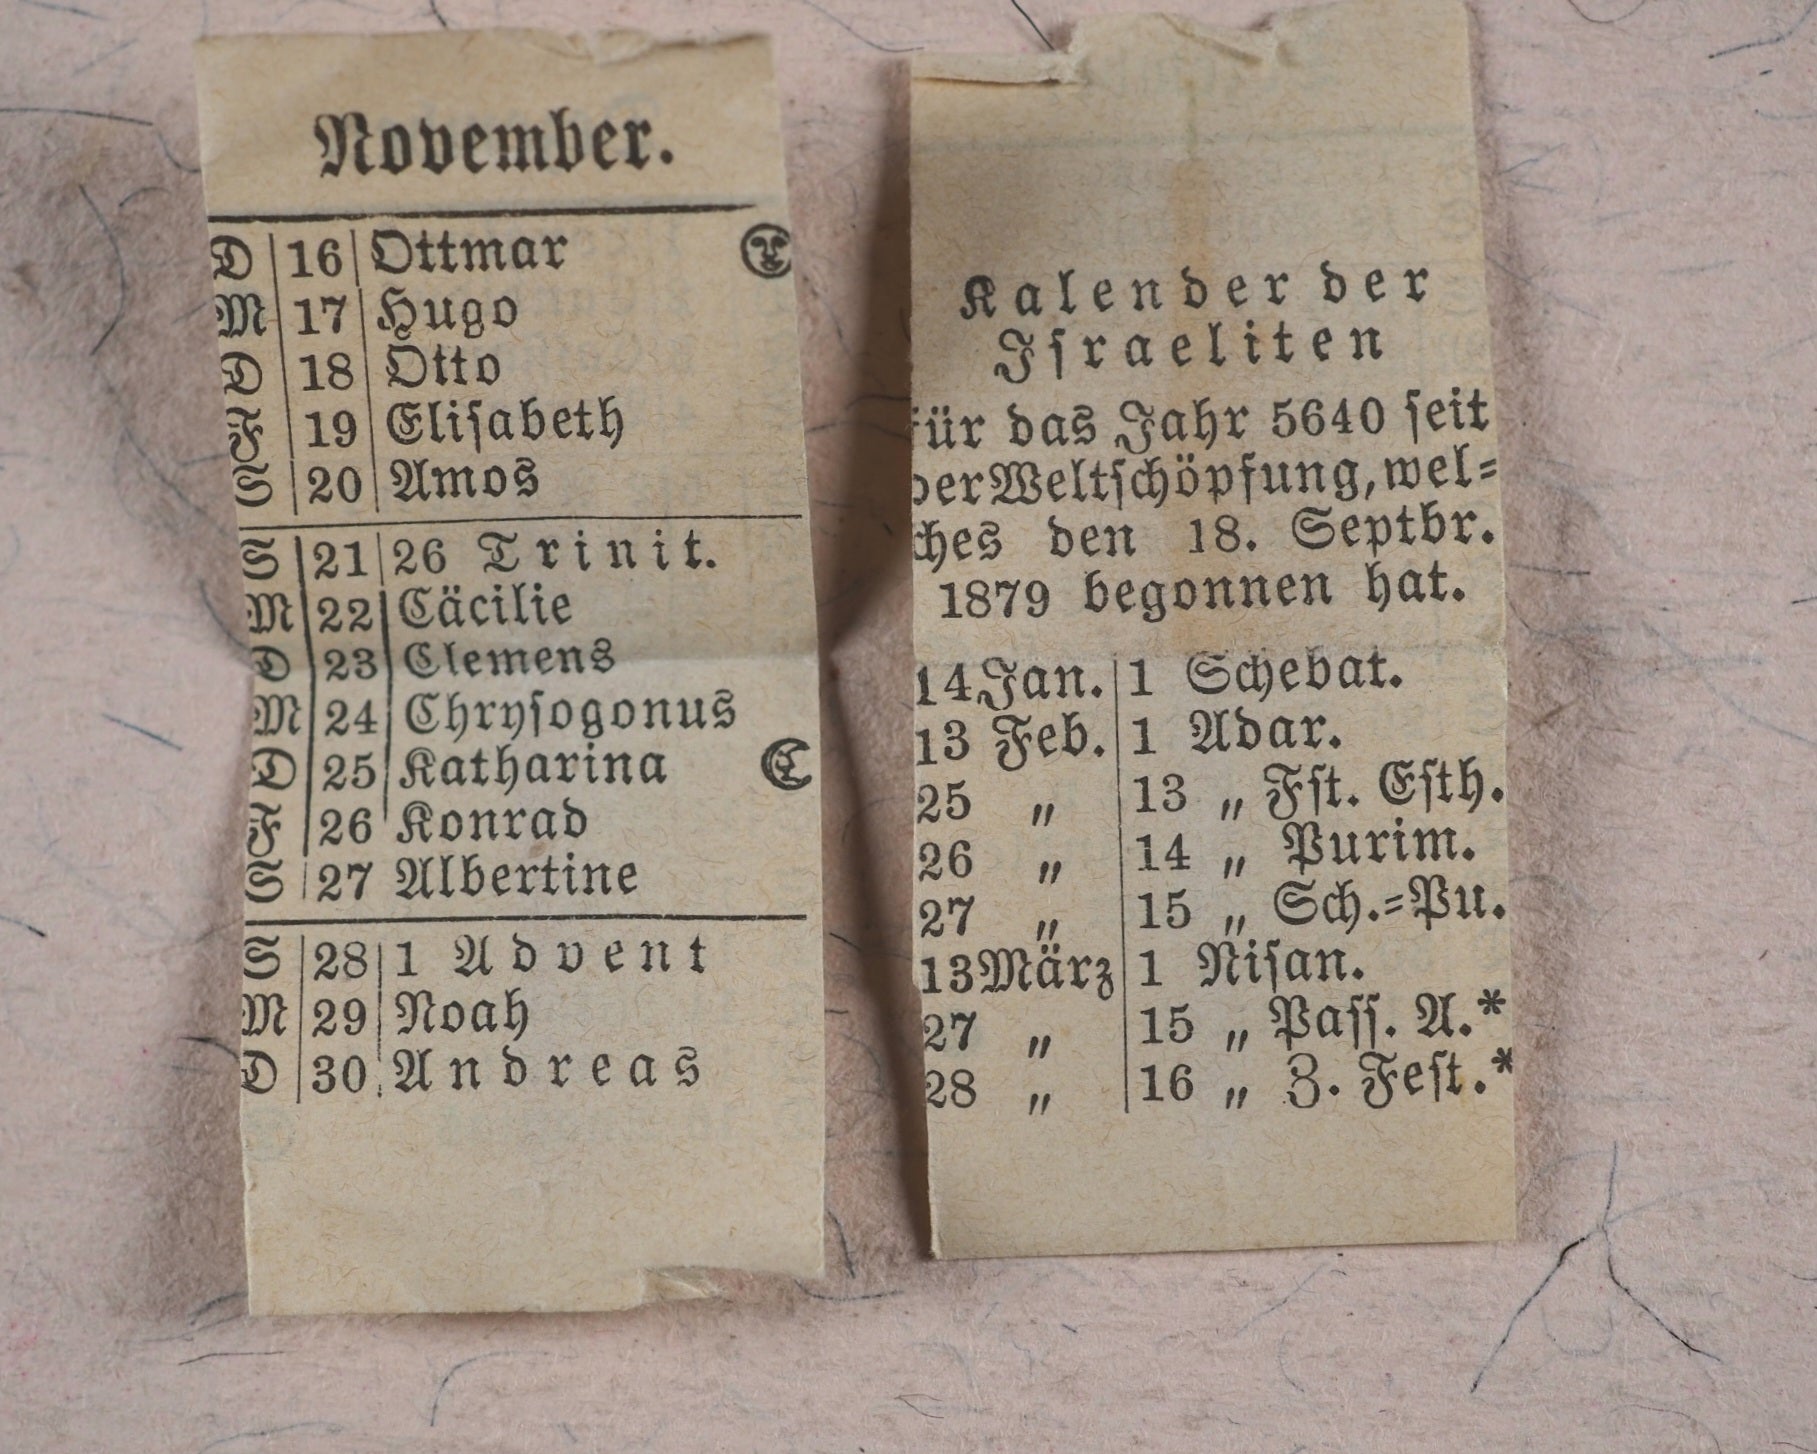 November.
D 16 Ottmar
M 17 Hugo
D 18 Otto
F 19 Eliſabeth
S 20 Amos
S 21 26 Trinit.
M 22 Cäcilie
D 23 Clemens
M 24 Chryſogonus
D 25 Katharina
F 26 Konrad
S 27 Albertine
S 28 1 Advent
M 29 Noah
D 30 Andreas
Kalender der
Iſraeliten
für das Jahr 5640 ſeit
der Weltſchöpfung, wel=
ches den 18. Septbr.
1879 begonnen hat.
14 Jan. 1 Schebat.
13 Feb. 1 Adar.
25 „ 13 „ Fſt. Eſth.
26 „ 14 „ Purim.
27 „ 15 „ Sch.=Pu.
13 März 1 Niſan.
27 „ 15 „ Paſſ. A.*
28 „ 16 „ Z. Feſt.*